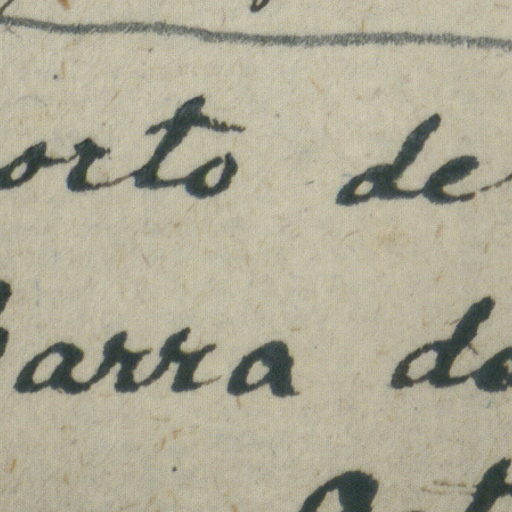 orto de
arra do